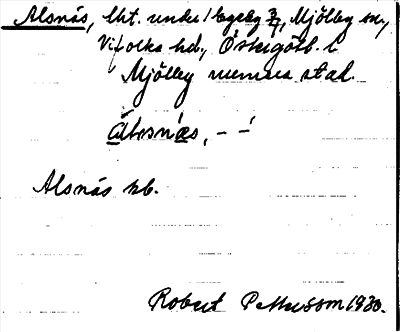 Alsnäs, lht. under Hageby 3/7, Mjölby sn,
Vifolka hd., Östergötl. l
Mjölby numera stad.
Alsnäs hb.
Robert Pettersson 1930.